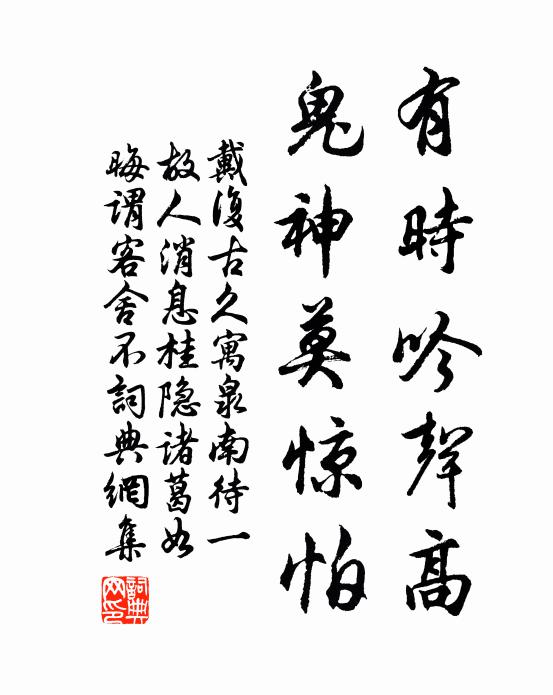 有時吟聲高
鬼神莫惊怕
戴復古久寓泉南待一
故人消息桂隐诸葛如
晦謂客舍不詞典網集
詞典网印